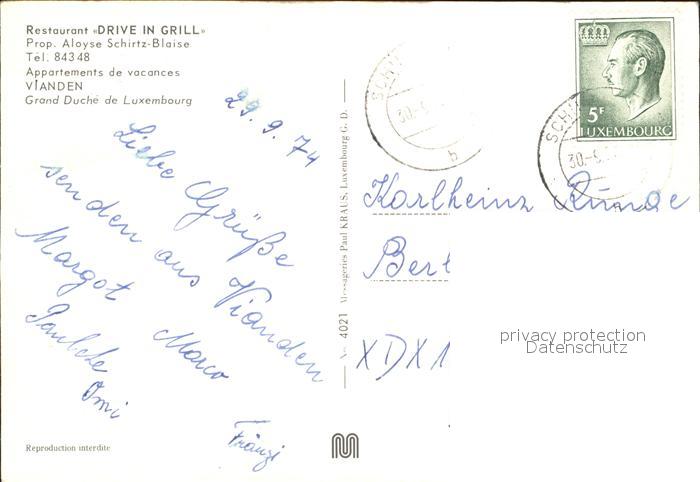 Restaurant «DRIVE IN GRILL»
Prop. Aloyse Schirtz-Blaise
Tél. 84348
Appartements de vacances
VIANDEN
Grand Duché de Luxembourg
29.9.74
Liebe Grüße
senden aus Vianden
Margot Marco
Omi
Fränzi
Reproduction interdite
4021 Messageries Paul KRAUS, Luxembourg G. D.
5F
LUXEMBOURG
30.-9.
b
30.-9.
Karlheinz
Berl
XDX1
privacy protection
Datenschutz